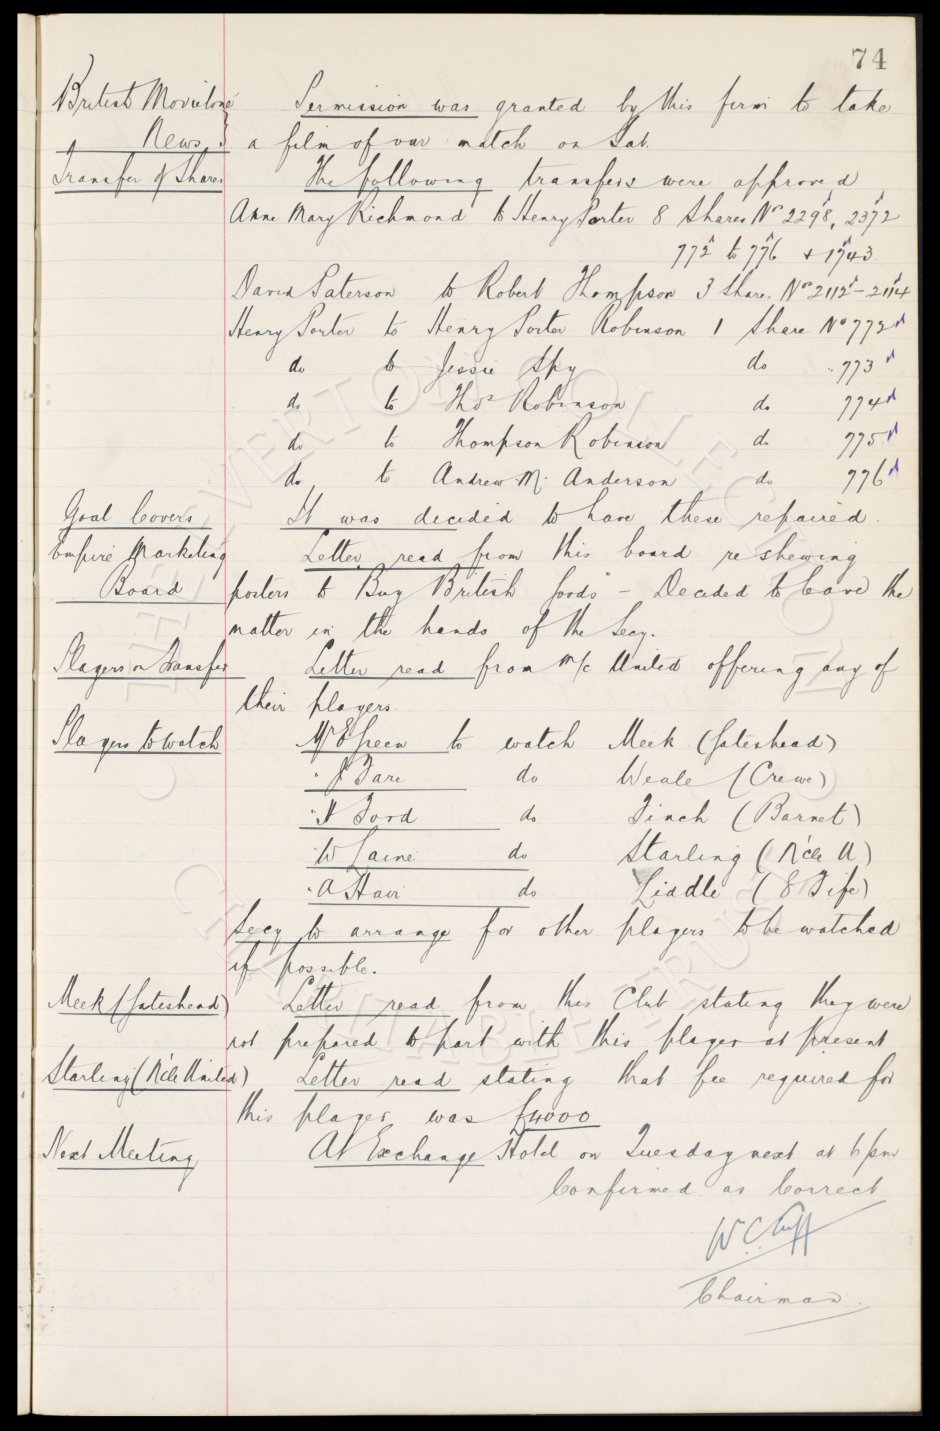 74
British Movietone Permission was granted by this firm to take
News. a film of our match on Sat.
Transfer of Shares The following transfers were approved
Anne Mary Richmond to Henry Porter 8 Shares Nos 2298, 2372
772 to 776 & 1743.
David Paterson to Robert Thompson 3 Share. Nos 2112 - 2114
Henry Porter to Henry Porter Robinson 1 Share No 772
do to Jessie Spy do " 773
do to Thos Robinson do 774
do to Thompson Robinson do 775
do to Andrew M. Anderson do 776
Goal Covers It was decided to have these repaired.
Empire Marketing Letter read from this board re shewing
Board posters to Buy British Goods" - Decided to leave the
matter in the hands of the Secy.
Players on Transfer Letter read from M/c United offering any of
their players.
Players to watch Mr E Green to watch Meek (Gateshead)
" do Weale (Crewe)
" do Finch (Barnet)
" do Starling (N'cle U)
" do Liddle (E Fife)
Secy to arrange for other players to be watched
if possible.
Meek (Gateshead) Letter read from this Club stating they were
not prepared to part with this player at present
Starling (N'cle United) Letter read stating that fee required for
this player was £4000
Next Meeting At Exchange Hotel on Tuesday next at 6 pm
Confirmed as Correct
W.C. Cuff
Chairman.
THE EVERTON COLLECTION
CHARITABLE TRUST